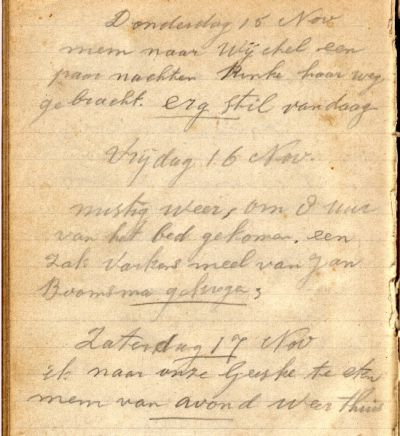 Donderdag 15 Nov
mem naar Wijckel een
paar nachten Rinke haar weg
gebracht. erg stil vandaag
Vrijdag 16 Nov.
mistig weer, om 8 uur
van het bed gekomen. een
zak varkens meel van Jan
Boomsma gekregen;
Zaterdag 17 Nov
ik naar onze Geeske te eten
mem van avond weer thuis